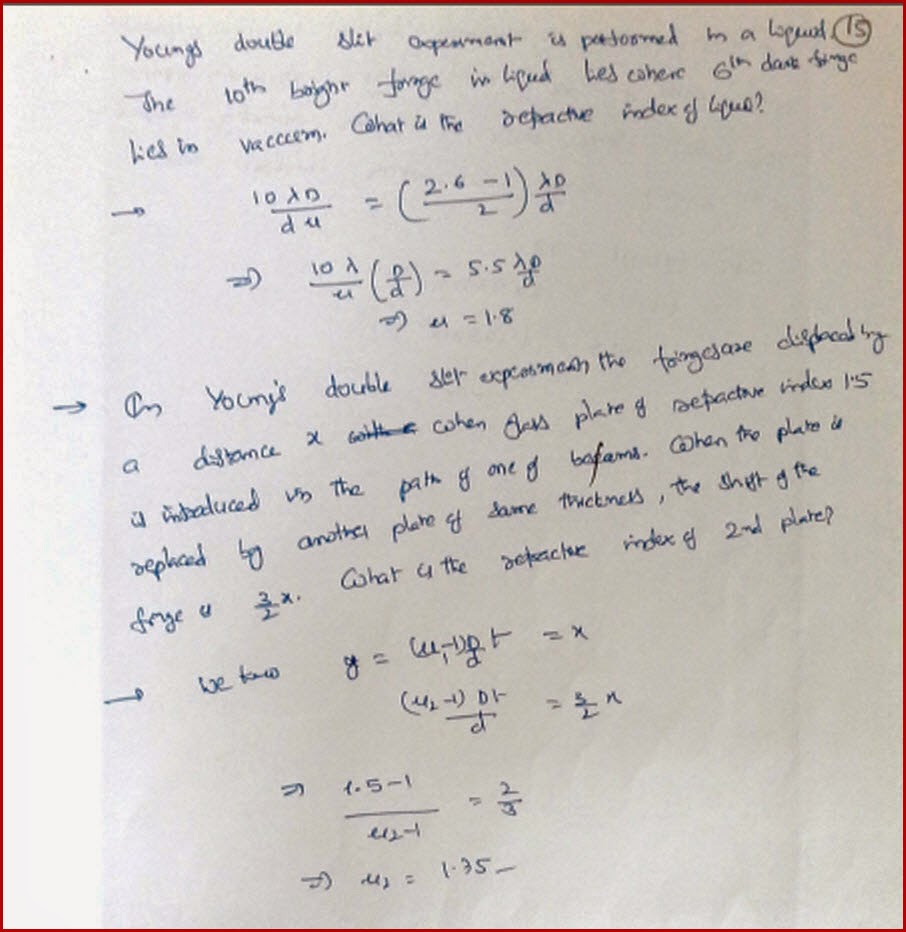 Youngs double slit experiment is performed in a liquid. 15
The 10th bright fringe in liquid lies where 6th dark fringe
lies in vaccum. What is the refractive index of liquid?
→ 10λD/dμ = (2.6 - 1/2) λD/d
⇒ 10λ/μ (D/d) = 5.5 λD/d
⇒ μ = 1.8
→ In Young's double slit experiment the fringes are displaced by
a distance x when glass plate of refractive index 1.5
is introduced in the path of one of beams. When the plate is
replaced by another plate of same thickness, the shift of the
fringe is 3/2 x. What is the refractive index of 2nd plate?
→ We know y = (μ₁-1) D/d t = x
(μ₂-1) Dt/d = 3/2 x
⇒ 1.5-1/μ₂-1 = 2/3
⇒ μ₂ = 1.35